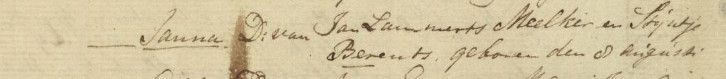 Janna D: van Jan Lammerts Meelker en Stijntje
Berents, geboren den 8 augusti